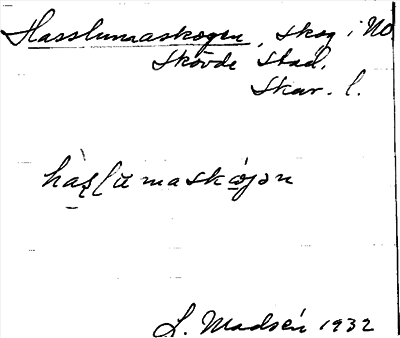 Hasslumaskogen, skog i NO
Skövde stad.
Skar. l.
hàs̠lu̇maskó̠jən
L. Madsén 1932